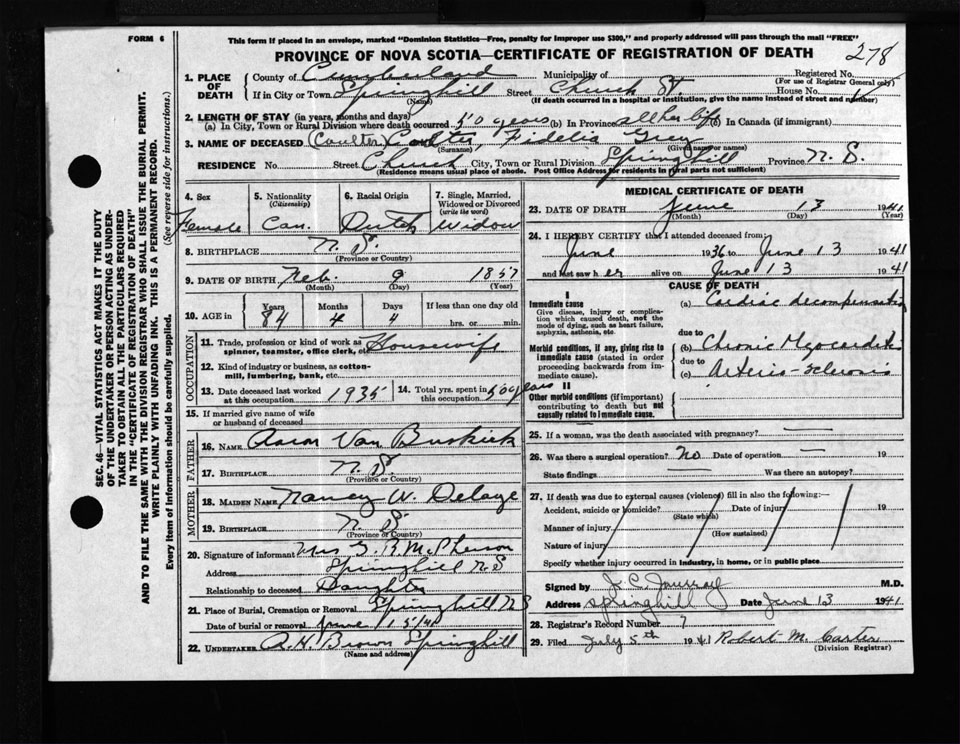 FORM 6
This form if placed in an envelope, marked "Dominion Statistics—Free, penalty for improper use $300," and properly addressed will pass through the mail "FREE"
PROVINCE OF NOVA SCOTIA—CERTIFICATE OF REGISTRATION OF DEATH
278
1. PLACE OF DEATH
County of Cumberland Municipality of Registered No.
(For use of Registrar General only)
If in City or Town Springhill Street Church St. House No.
(Name) (If death occurred in a hospital or institution, give the name instead of street and number)
2. LENGTH OF STAY (in years, months and days)
(a) In City, Town or Rural Division where death occurred 50 years (b) In Province all her life (c) In Canada (if immigrant)
3. NAME OF DECEASED (Coulter) Coulter, Fidelia Gray
(Surname) (Given or names)
RESIDENCE No. Street Church City, Town or Rural Division Springhill Province N. S.
(Residence means usual place of abode. Post Office Address for residents in rural parts not sufficient)
4. Sex Female
5. Nationality (Citizenship) Can.
6. Racial Origin Dutch
7. Single, Married, Widowed or Divorced (write the word) Widow
8. BIRTHPLACE N. S.
(Province or Country)
9. DATE OF BIRTH Feb. 9 1857
(Month) (Day) (Year)
10. AGE in Years 84 Months 4 Days 4 If less than one day old
hrs. or min.
OCCUPATION
11. Trade, profession or kind of work as spinner, teamster, office clerk, etc. Housewife
12. Kind of industry or business, as cotton-mill, lumbering, bank, etc.
13. Date deceased last worked at this occupation 1935
14. Total yrs. spent in this occupation 50 years
15. If married give name of wife or husband of deceased
FATHER
16. NAME Aaron Van Buskirk
17. BIRTHPLACE N. S.
(Province or Country)
MOTHER
18. MAIDEN NAME Nancy W. Delaye
19. BIRTHPLACE N. S.
(Province or Country)
20. Signature of informant Mrs G. R. McPherson
Address Springhill N. S
Relationship to deceased Daughter
21. Place of Burial, Cremation or Removal Springhill N S
Date of burial or removal June 15/41
22. UNDERTAKER A. H. Brown Springhill
(Name and address)
MEDICAL CERTIFICATE OF DEATH
23. DATE OF DEATH June 13 1941
(Month) (Day) (Year)
24. I HEREBY CERTIFY that I attended deceased from:
June 1936 to June 13 1941
and last saw her alive on June 13 1941
CAUSE OF DEATH
I
Immediate cause
Give disease, injury or complication which caused death, not the mode of dying, such as heart failure, asphyxia, asthenia, etc.
(a) Cardiac decompensation
due to
Morbid conditions, if any, giving rise to immediate cause (stated in order proceeding backwards from immediate cause).
(b) Chronic Myocarditis
due to
(c) Arterio-sclerosis
II
Other morbid conditions (if important) contributing to death but not causally related to immediate cause.
25. If a woman, was the death associated with pregnancy? —
26. Was there a surgical operation? No Date of operation — 19
State findings — Was there an autopsy?
27. If death was due to external causes (violence) fill in also the following:—
Accident, suicide or homicide? Date of injury 19
(State which)
Manner of injury
(How sustained)
Nature of injury
Specify whether injury occurred in industry, in home, or in public place
Signed by M.D.
Address Springhill Date June 13 1941
28. Registrar's Record Number 7
29. Filed July 5th 1941 Robert M. Carter
(Division Registrar)
SEC. 46—VITAL STATISTICS ACT MAKES IT THE DUTY
OF THE UNDERTAKER OR PERSON ACTING AS UNDER-
TAKER TO OBTAIN ALL THE PARTICULARS REQUIRED
IN THE "CERTIFICATE OF REGISTRATION OF DEATH"
AND TO FILE THE SAME WITH THE DIVISION REGISTRAR WHO SHALL ISSUE THE BURIAL PERMIT.
WRITE PLAINLY WITH UNFADING INK. THIS IS A PERMANENT RECORD.
Every item of information should be carefully supplied. (See reverse side for instructions.)